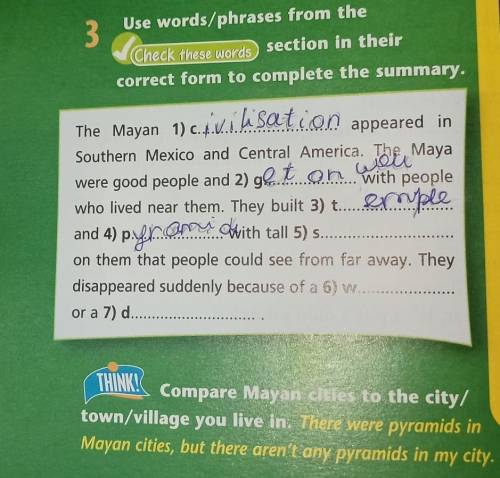 3 Use words/phrases from the
Check these words section in their
correct form to complete the summary.
The Mayan 1) c.ivilisation appeared in
Southern Mexico and Central America. The Maya
well
were good people and 2) get on with people
who lived near them. They built 3) t....emple
and 4) pyramid with tall 5) s...........................
on them that people could see from far away. They
disappeared suddenly because of a 6) w...................
or a 7) d......................... .
THINK! Compare Mayan cities to the city/
town/village you live in. There were pyramids in
Mayan cities, but there aren't any pyramids in my city.